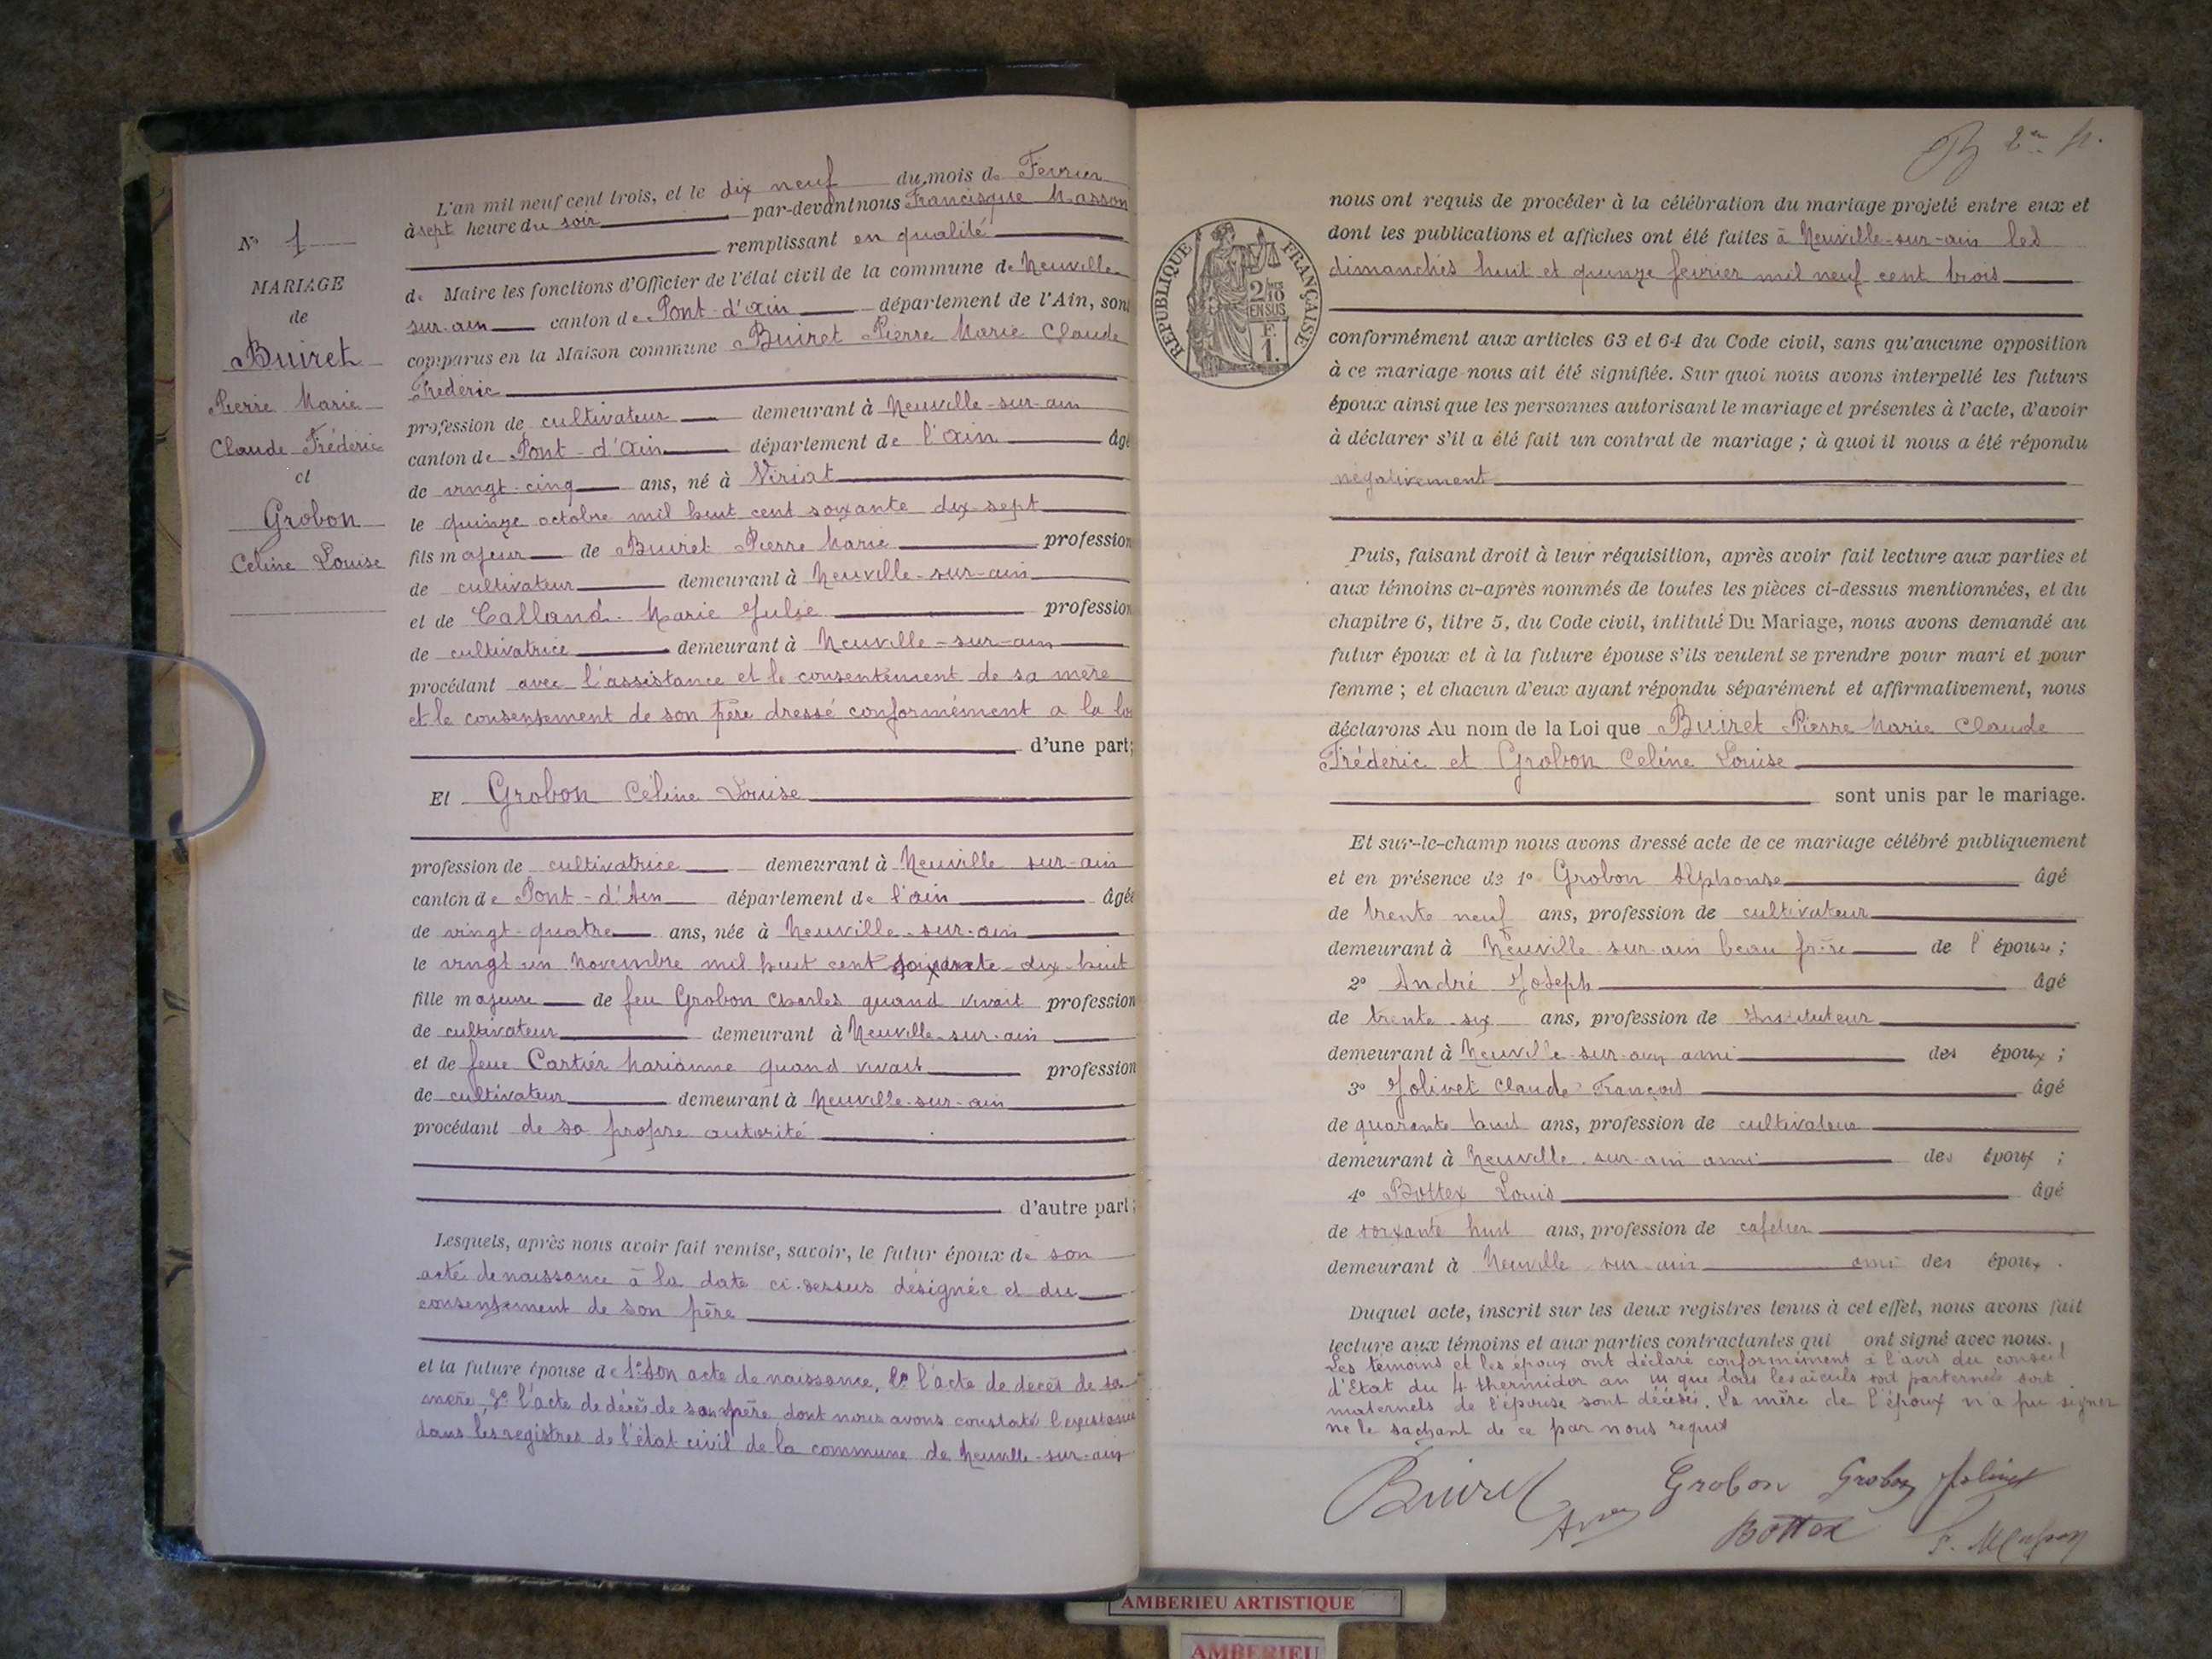 N° 1
MARIAGE
de
Buiret
Pierre Marie
Claude Fréderic
et
Grobon
Celine Louise
L'an mil neuf cent trois, et le dix neuf du mois de Fevrier
à sept heure du soir par-devant nous Francisque Masson
remplissant en qualité
de Maire les fonctions d'Officier de l'état civil de la commune de Neuville
sur-ain canton de Pont-d'ain département de l'Ain, sont
comparus en la Maison commune Buiret Pierre Marie Claude
Frederic
profession de cultivateur demeurant à Neuville-sur-ain
canton de Pont-d'Ain département de l'ain âgé
de vingt-cinq ans, né à Viriat
le quinze octobre mil huit cent soixante dix-sept
fils majeur de Buiret Pierre Marie profession
de cultivateur demeurant à Neuville-sur-ain
et de Calland Marie Julie profession
de cultivatrice demeurant à Neuville-sur-ain
procédant avec l'assistance et le consentement de sa mère
et le consentement de son père dressé conformément a la loi
d'une part;
Et Grobon Céline Louise
profession de cultivatrice demeurant à Neuville sur-ain
canton de Pont-d'Ain département de l'ain âgée
de vingt-quatre ans, née à Neuville-sur-ain
le vingt un Novembre mil huit cent soixante-dix-huit
fille majeure de feu Grobon Charles quand vivait profession
de cultivateur demeurant à Neuville-sur-ain
et de feue Cartier Marianne quand vivait profession
de cultivateur demeurant à Neuville-sur-ain
procédant de sa propre autorité
d'autre part;
Lesquels, après nous avoir fait remise, savoir, le futur époux de son
acte de naissance à la date ci-dessus désignée et du
consentement de son père
et la future épouse de 1° son acte de naissance, 2° l'acte de decès de sa
mère 3° l'acte de décès de son père dont nous avons constaté l'existence
dans les registres de l'état civil de la commune de Neuville-sur-ain
RÉPUBLIQUE FRANÇAISE
2/10
EN SUS
F.
1.
nous ont requis de procéder à la célébration du mariage projeté entre eux et
dont les publications et affiches ont été faites à Neuville-sur-ain les
dimanches huit et quinze fevrier mil neuf cent trois
conformément aux articles 63 et 64 du Code civil, sans qu'aucune opposition
à ce mariage nous ait été signifiée. Sur quoi nous avons interpellé les futurs
époux ainsi que les personnes autorisant le mariage et présentes à l'acte, d'avoir
à déclarer s'il a été fait un contrat de mariage ; à quoi il nous a été répondu
négativement
Puis, faisant droit à leur réquisition, après avoir fait lecture aux parties et
aux témoins ci-après nommés de toutes les pièces ci-dessus mentionnées, et du
chapitre 6, titre 5, du Code civil, intitulé Du Mariage, nous avons demandé au
futur époux et à la future épouse s'ils veulent se prendre pour mari et pour
femme ; et chacun d'eux ayant répondu séparément et affirmativement, nous
déclarons Au nom de la Loi que Buiret Pierre Marie Claude
Fréderic et Grobon Celine Louise
sont unis par le mariage.
Et sur-le-champ nous avons dressé acte de ce mariage célébré publiquement
et en présence de 1° Grobon Alphonse âgé
de trente neuf ans, profession de cultivateur
demeurant à Neuville-sur-ain beau frère de l'épouse ;
2° André Joseph âgé
de trente-six ans, profession de Instituteur
demeurant à Neuville-sur-ain ami des époux ;
3° Jolivet Claude François âgé
de quarante huit ans, profession de cultivateur
demeurant à Neuville-sur-ain ami des époux ;
4° Bottex Louis âgé
de soixante huit ans, profession de cafetier
demeurant à Neuville sur-ain ami des époux.
Duquel acte, inscrit sur les deux registres tenus à cet effet, nous avons fait
lecture aux témoins et aux parties contractantes qui ont signé avec nous.
Les témoins et les époux ont déclaré conformément à l'avis du conseil
d'Etat du 4 thermidor an que tous les aïeuls soit paternels soit
maternels de l'épouse sont décédés. La mère de l'époux n'a pu signer
ne le sachant de ce par nous requis
Buiret Grobon Grobon Jolivet
Bottex F. Masson
AMBERIEU ARTISTIQUE
AMBERIEU